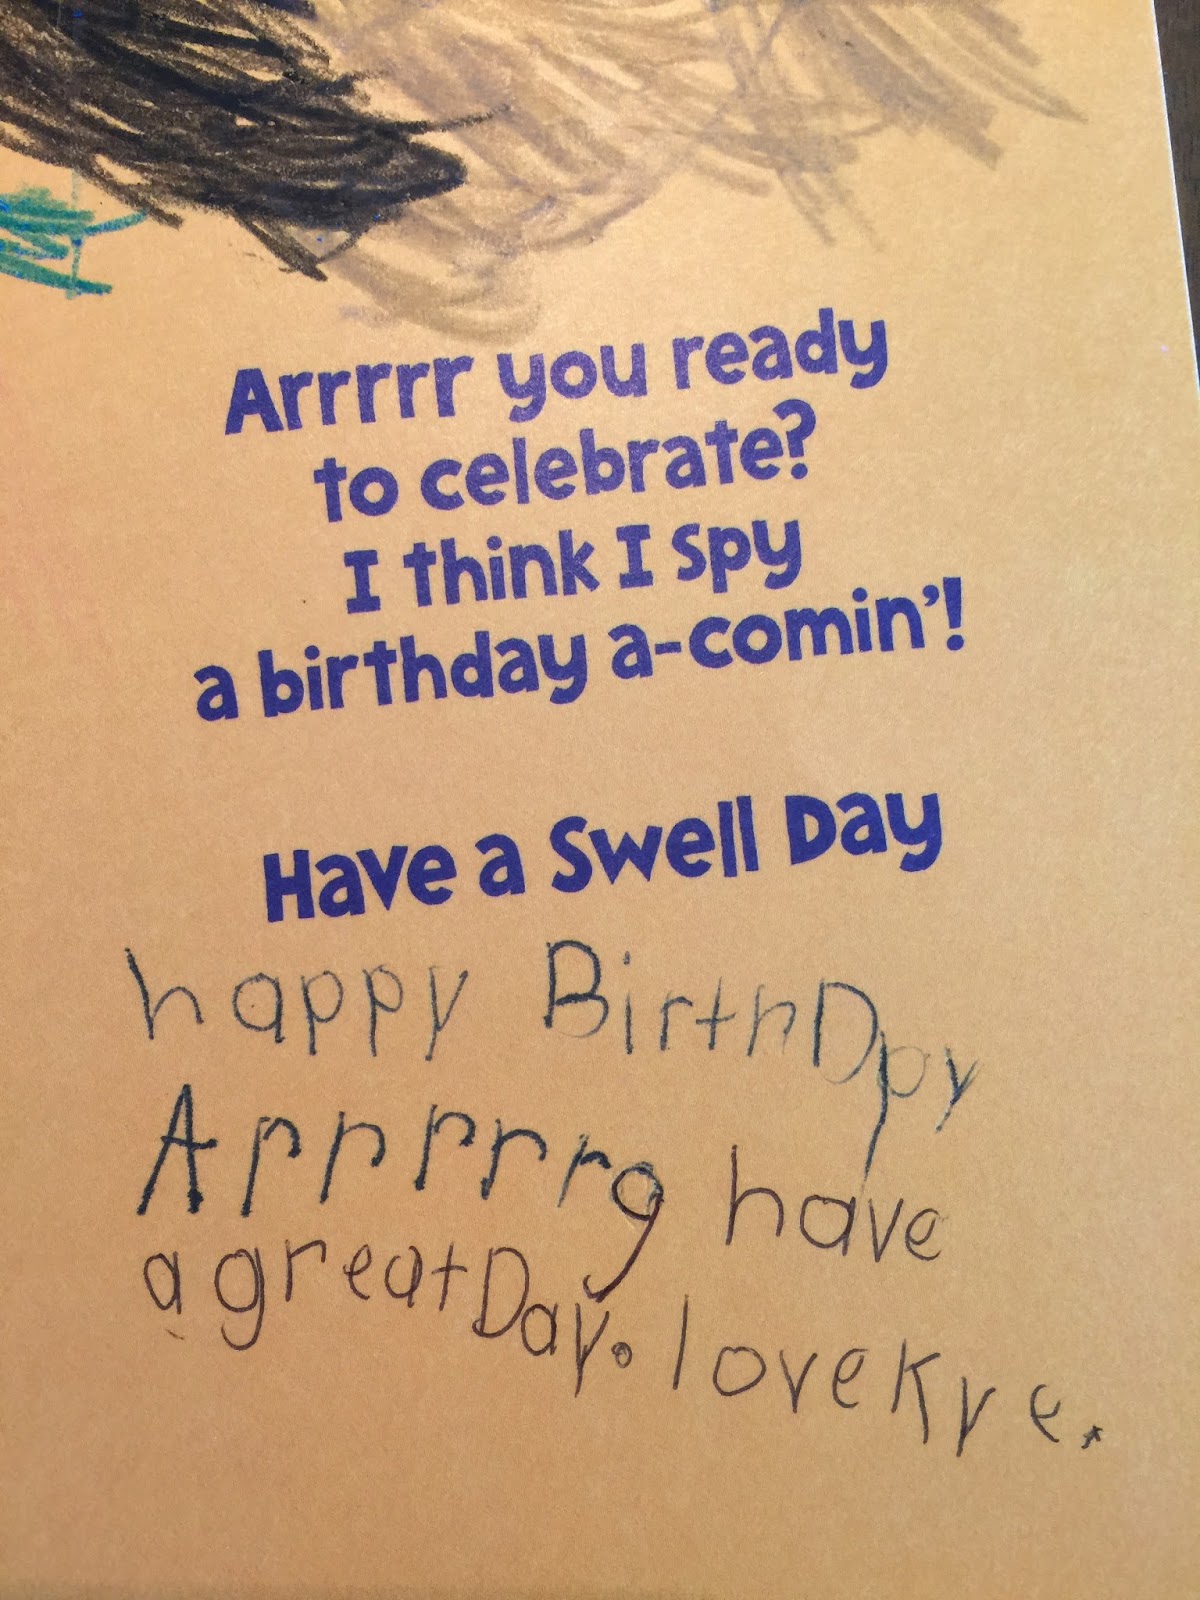 Arrrrr you ready
to celebrate?
I think I spy
a birthday a-comin'!
Have a Swell Day
happy BirthDay
Arrrrrg have
a great Day. love Kye.